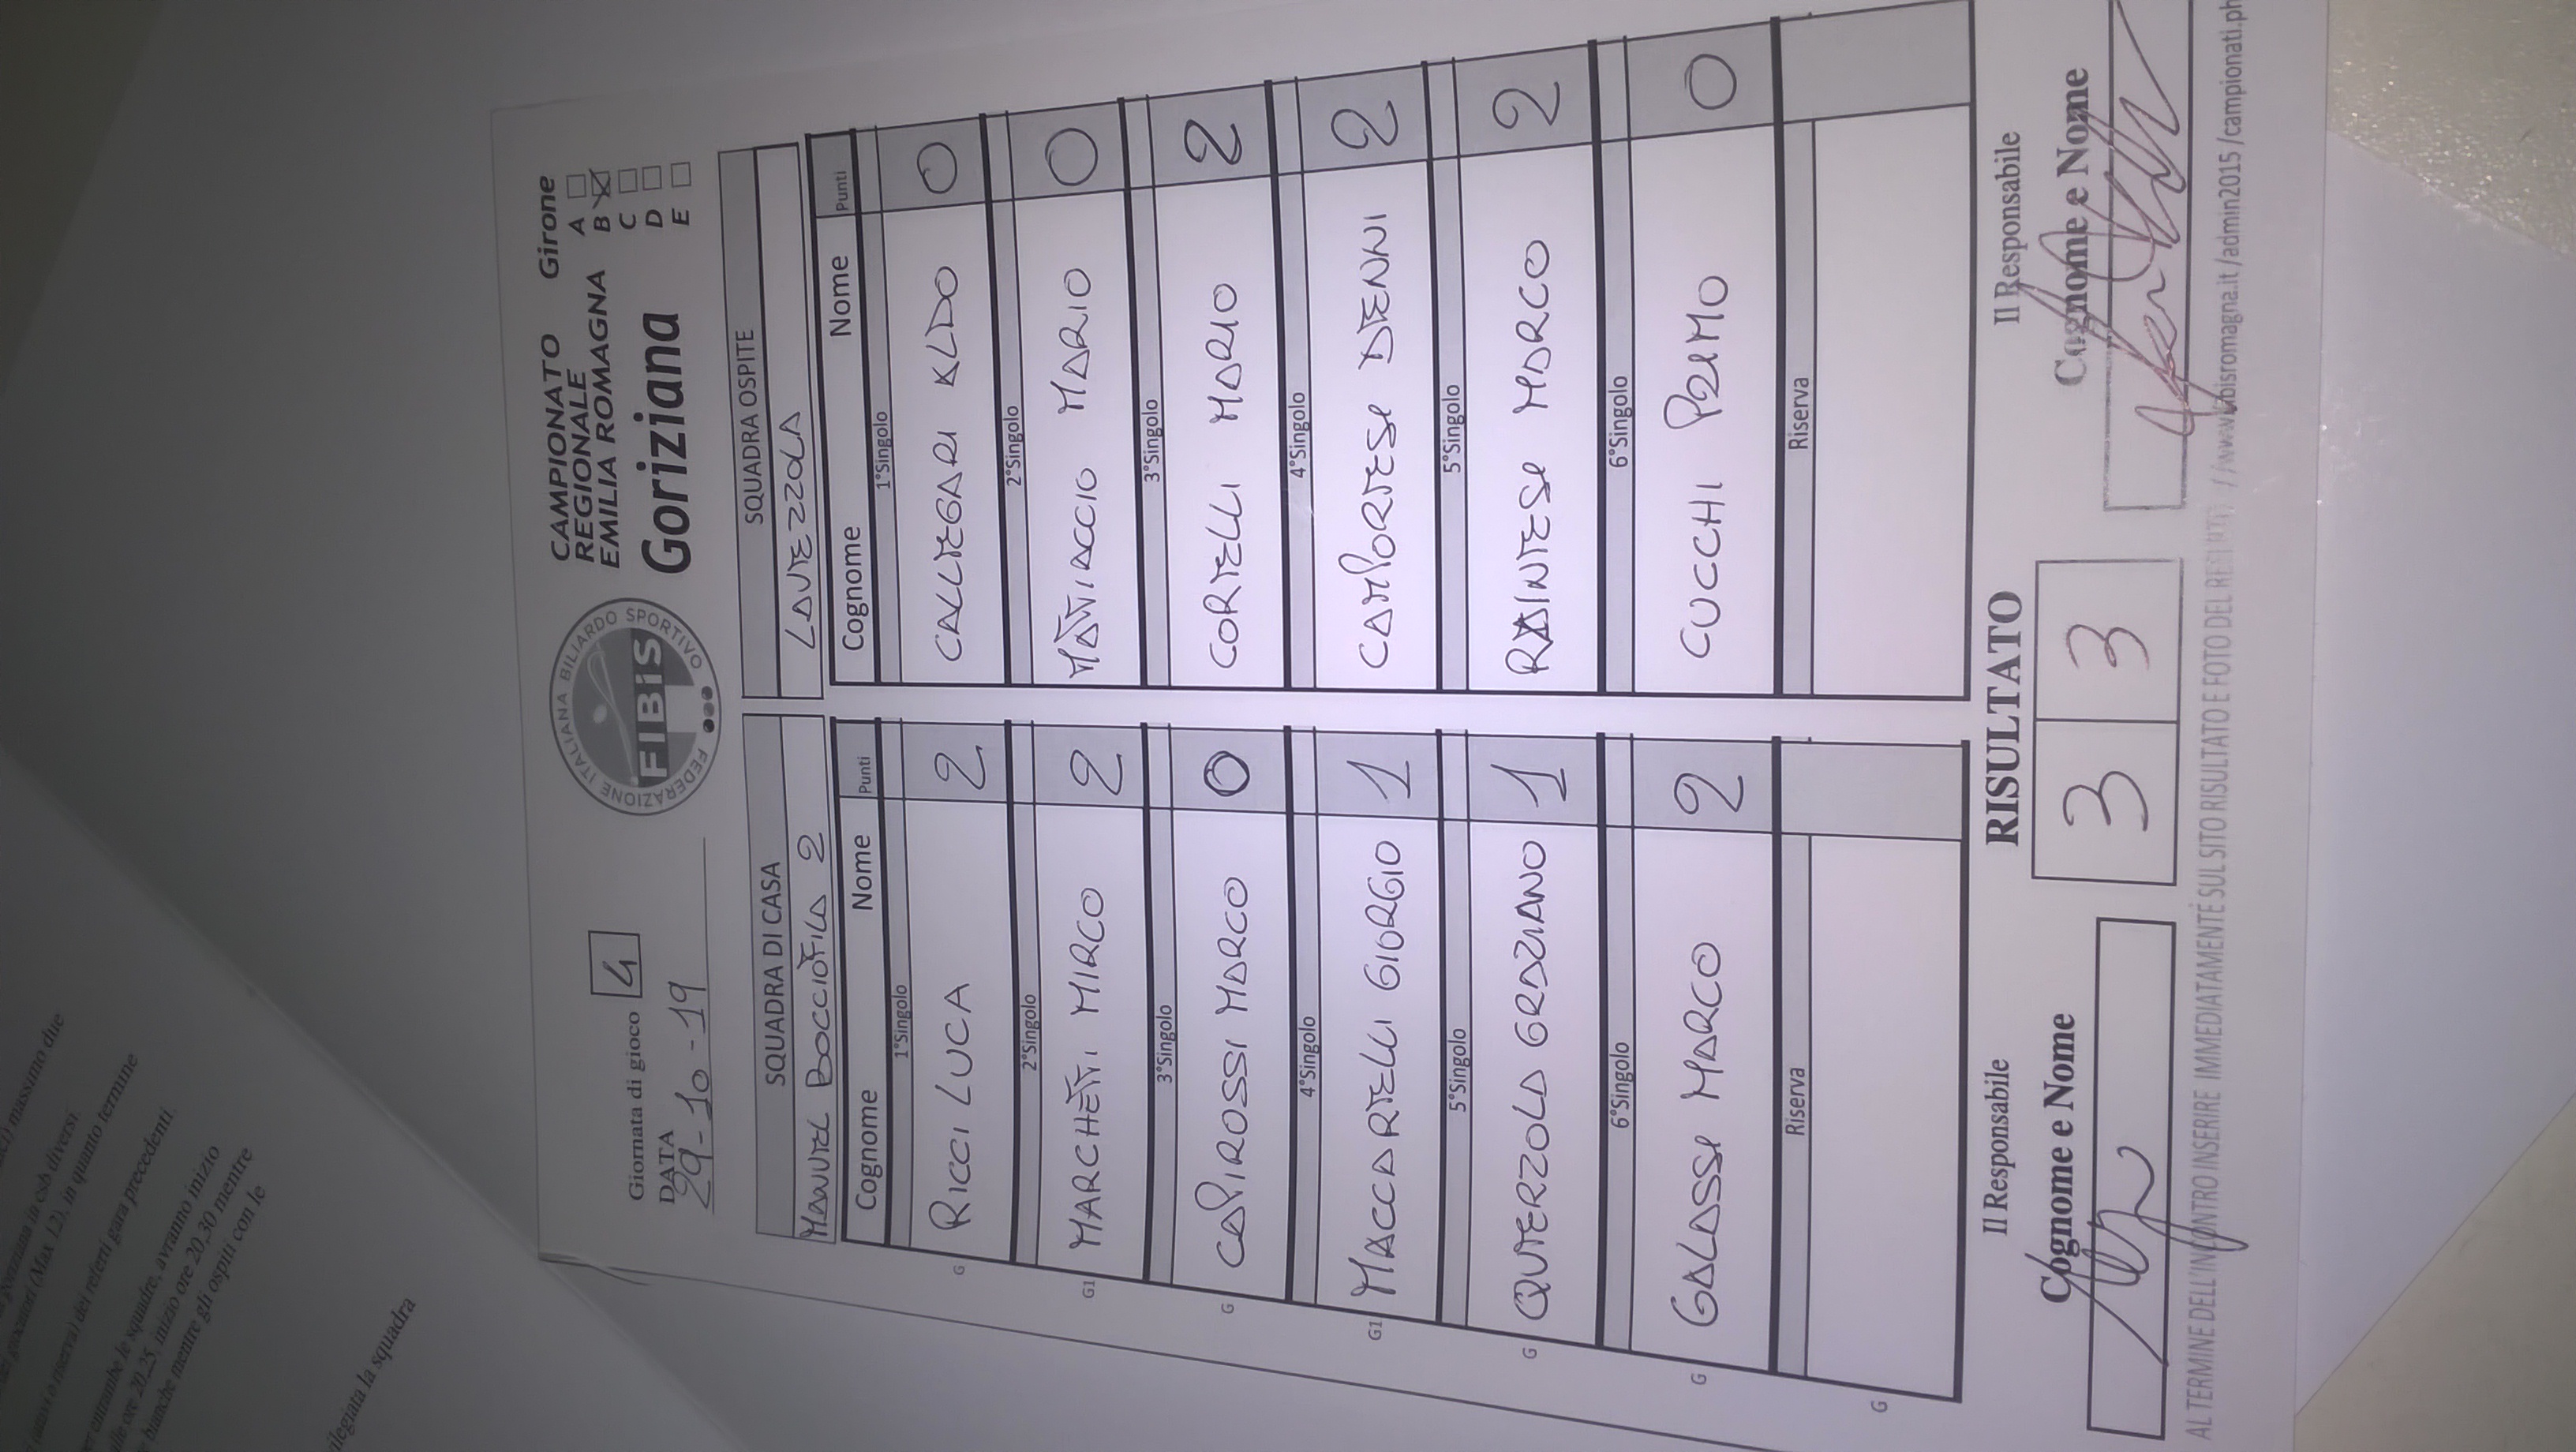 Giornata di gioco 4
DATA
29-10-19
FEDERAZIONE ITALIANA BILIARDO SPORTIVO
FIBiS
CAMPIONATO
REGIONALE
EMILIA ROMAGNA
Goriziana
Girone
A
B
C
D
E
SQUADRA DI CASA
MANUEL BOCCIOFILA 2
Cognome Nome Punti
1°Singolo
G RICCI LUCA 2
2°Singolo
G1 MARCHETTI MIRCO 2
3°Singolo
G CAPIROSSI MARCO 0
4°Singolo
G1 MACCARELLI GIORGIO 1
5°Singolo
G QUERZOLA GRAZIANO 1
6°Singolo
G GALASSI MARCO 2
Riserva
G
SQUADRA OSPITE
LAVEZZOLA
Cognome Nome Punti
1°Singolo
CALLEGARI ALDO 0
2°Singolo
MATTIACCIO MARIO 0
3°Singolo
CORELLI MARIO 2
4°Singolo
CAMPORESI DENNI 2
5°Singolo
RAINESI MARCO 2
6°Singolo
CUCCHI PRIMO 0
Riserva
Il Responsabile RISULTATO Il Responsabile
Cognome e Nome 3 3 Cognome e Nome
AL TERMINE DELL'INCONTRO INSERIRE IMMEDIATAMENTE SUL SITO RISULTATO E FOTO DEL //www.fibisromagna.it/admin2015/campionati.ph
massimo due
in csb diversi.
giocatori (Max 12), in quanto termine
o riserva) dei referti gara precedenti.
entrambe le squadre, avranno inizio
alle ore 20,25, inizio ore 20,30 mentre
bianche mentre gli ospiti con le
ilegiata la squadra